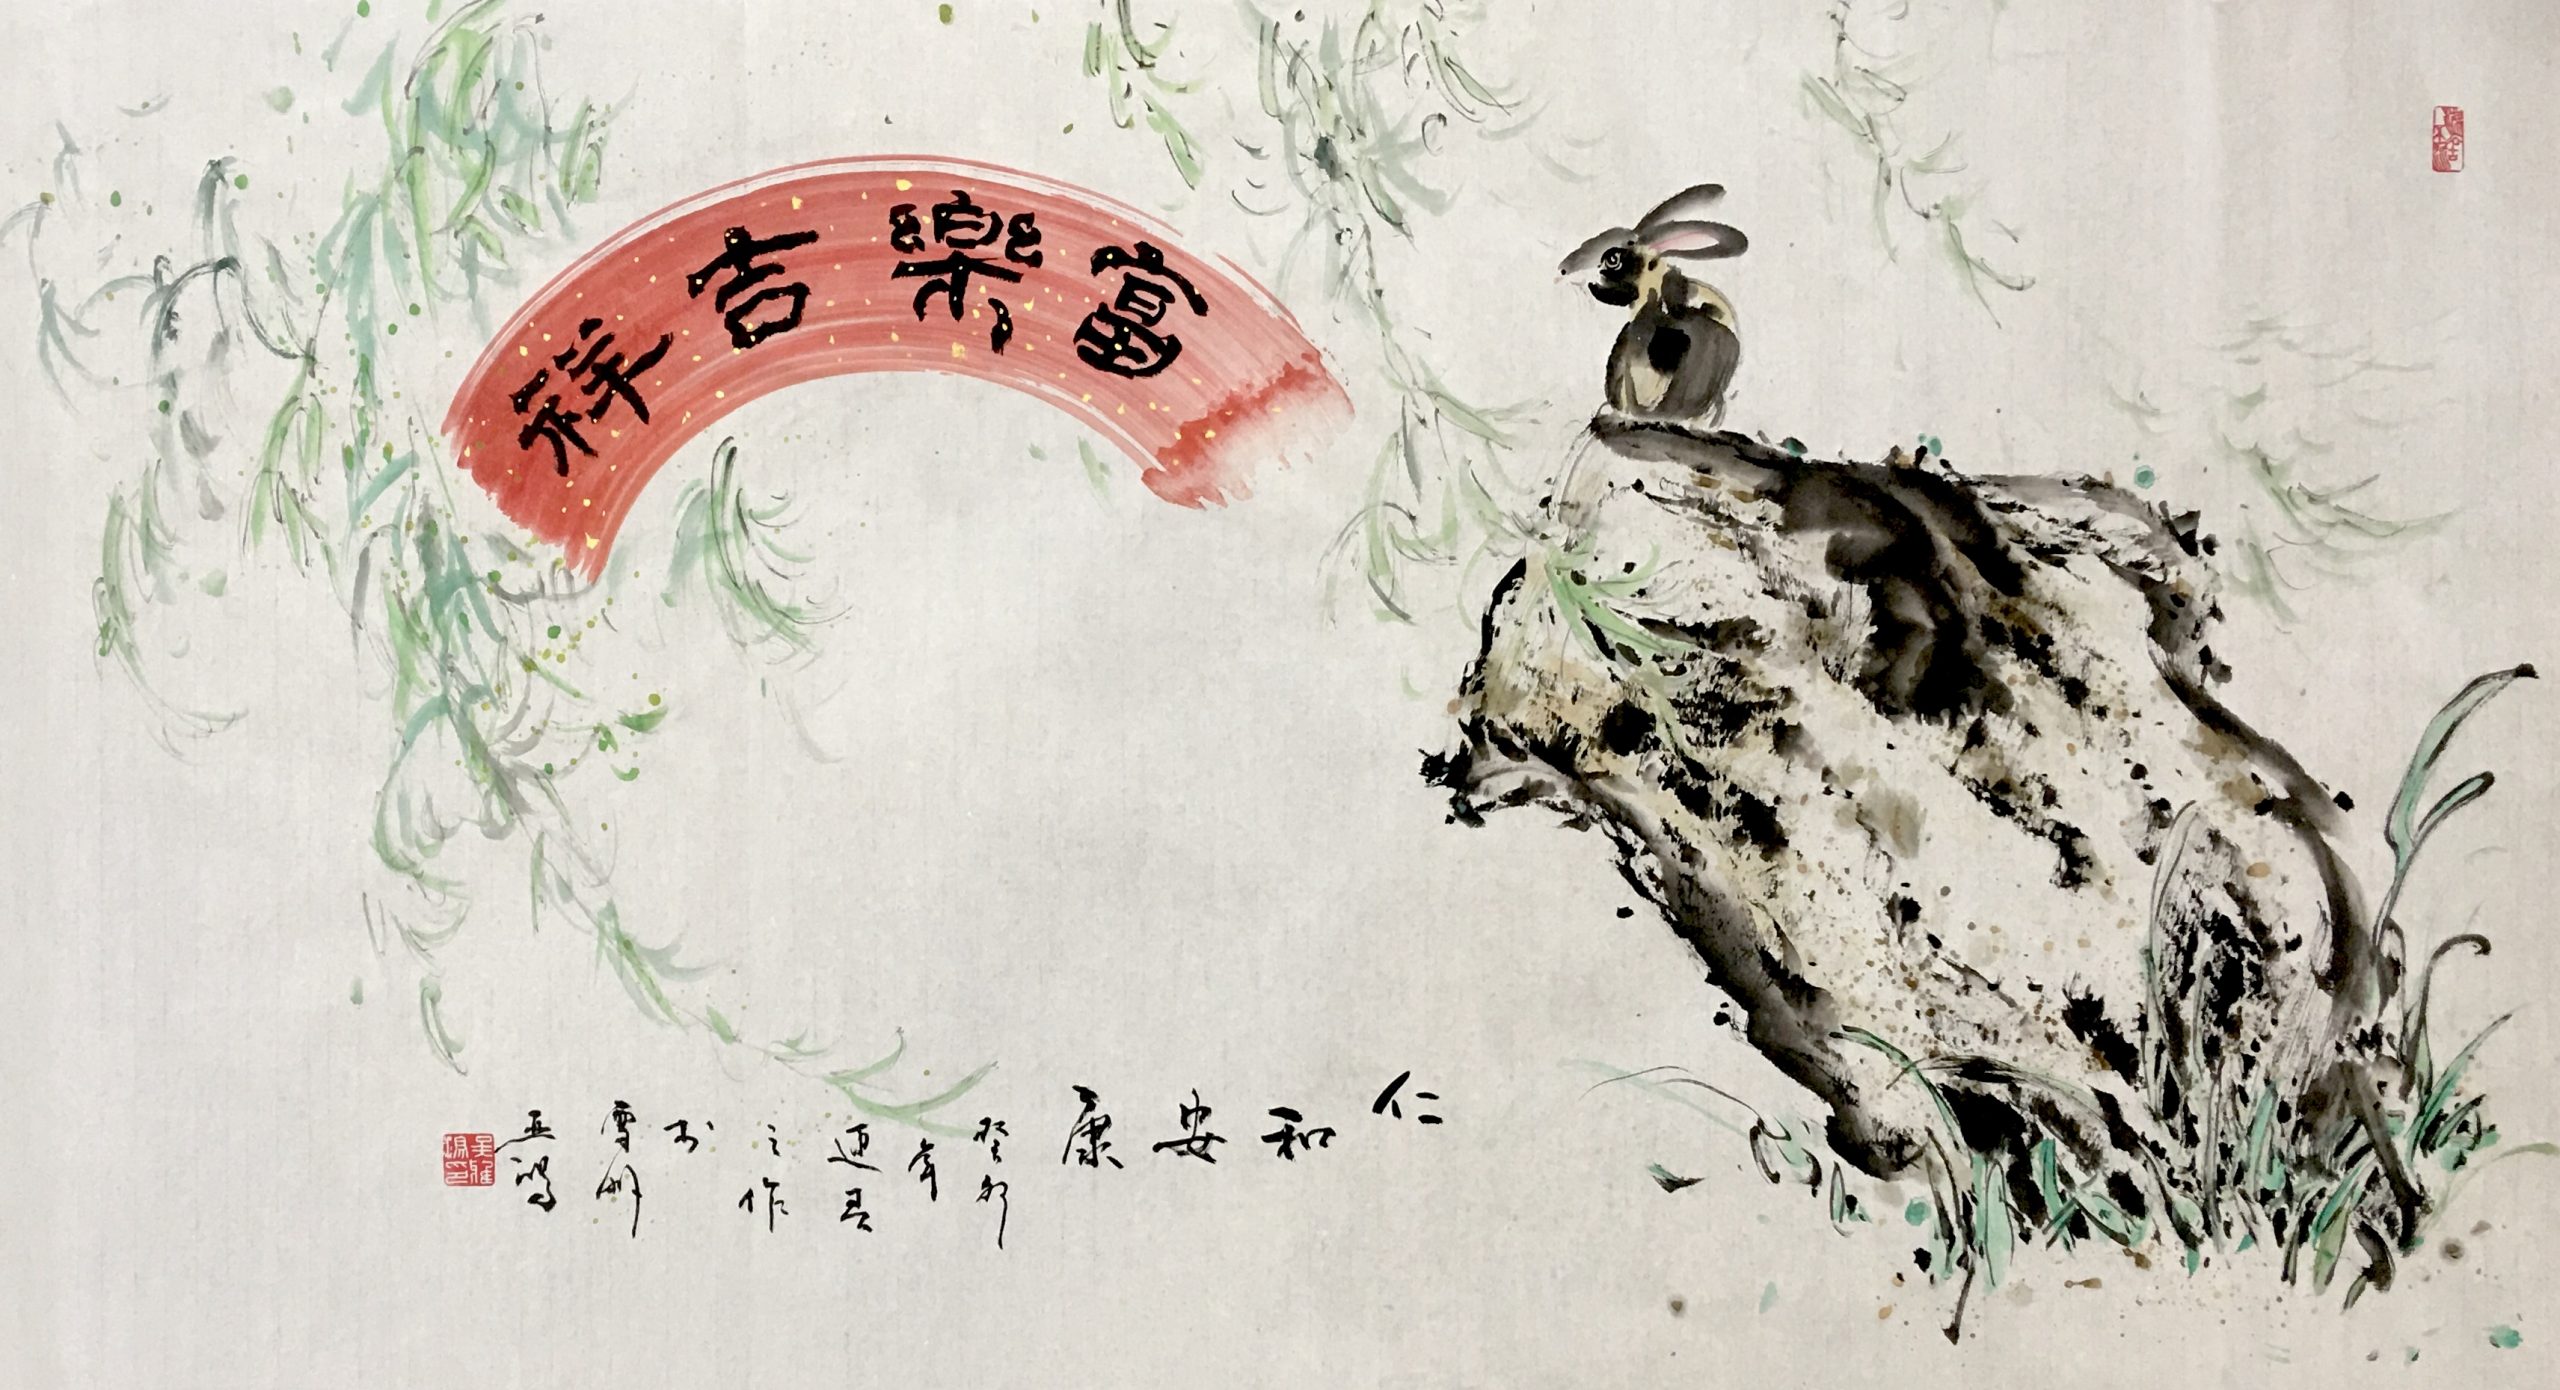 富樂吉祥
仁和安康
癸卯年迎春之作於雪州亞鴻